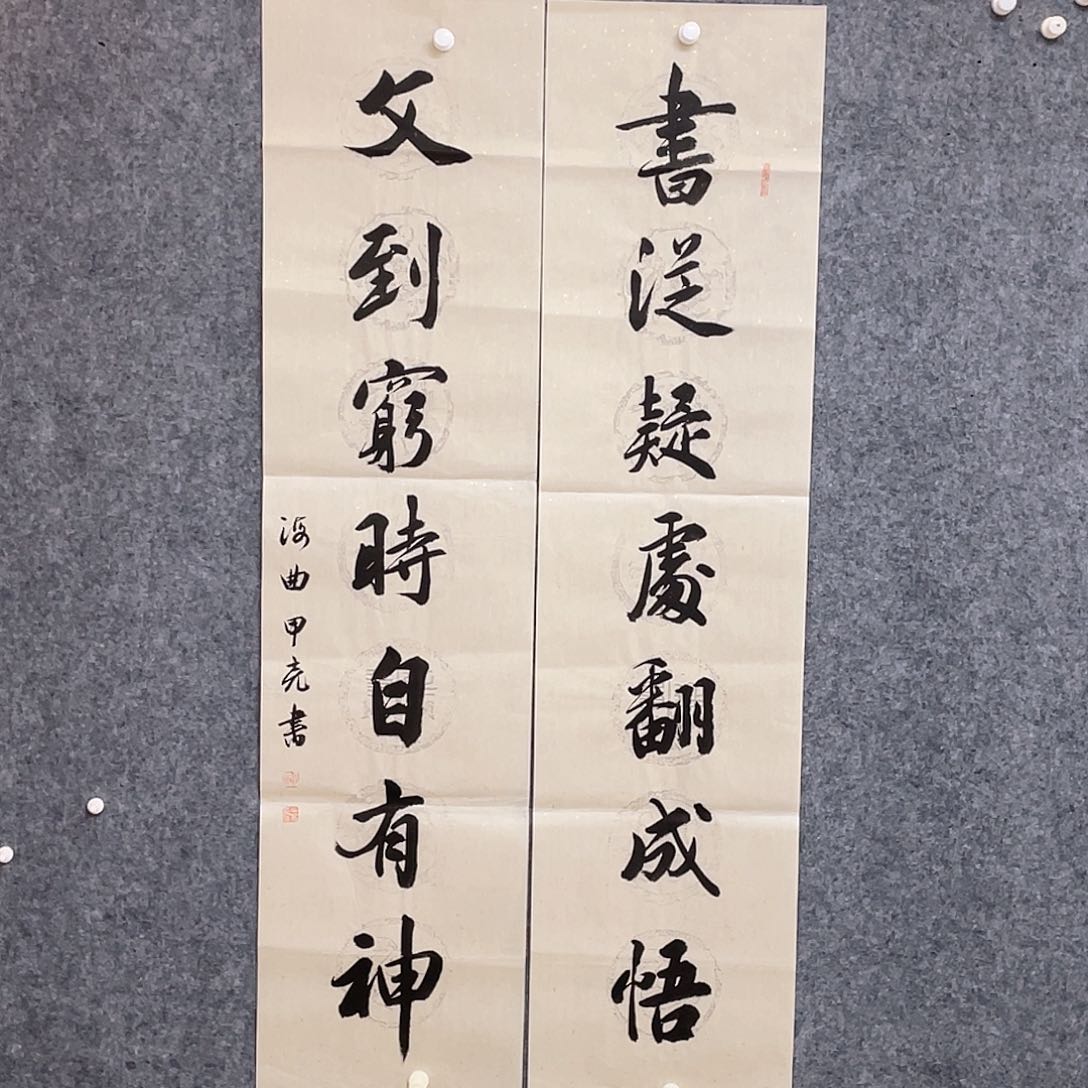 書從疑處翻成悟
文到窮時自有神
海曲甲堯書